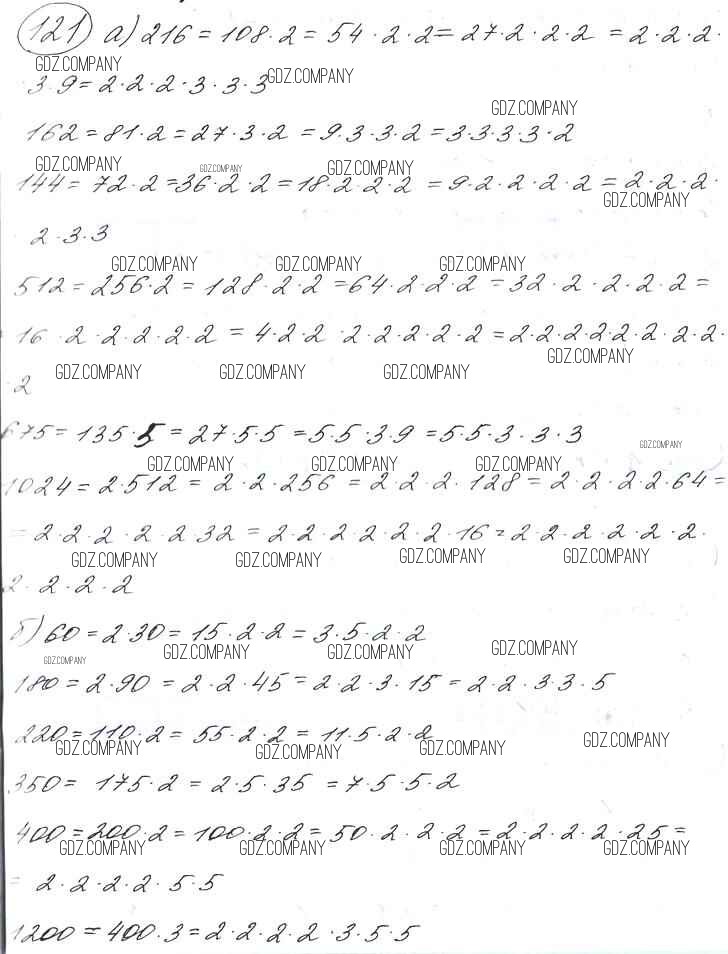 121 а) 216 = 108 · 2 = 54 · 2 · 2 = 27 · 2 · 2 · 2 = 2 · 2 · 2 ·
GDZ.COMPANY
· 3 · 9 = 2 · 2 · 2 · 3 · 3 · 3 GDZ.COMPANY
GDZ.COMPANY
162 = 81 · 2 = 27 · 3 · 2 = 9 · 3 · 3 · 2 = 3 · 3 · 3 · 3 · 2
GDZ.COMPANY GDZ.COMPANY GDZ.COMPANY
144 = 72 · 2 = 36 · 2 · 2 = 18 · 2 · 2 · 2 = 9 · 2 · 2 · 2 · 2 = 2 · 2 · 2 ·
GDZ.COMPANY
2 · 3 · 3
GDZ.COMPANY GDZ.COMPANY GDZ.COMPANY
512 = 256 · 2 = 128 · 2 · 2 = 64 · 2 · 2 · 2 = 32 · 2 · 2 · 2 · 2 =
16 · 2 · 2 · 2 · 2 · 2 = 4 · 2 · 2 · 2 · 2 · 2 · 2 · 2 = 2 · 2 · 2 · 2 · 2 · 2 · 2 · 2 ·
GDZ.COMPANY
GDZ.COMPANY GDZ.COMPANY GDZ.COMPANY
· 2
675 = 135 · 5 = 27 · 5 · 5 = 5 · 5 · 3 · 9 = 5 · 5 · 3 · 3 · 3
GDZ.COMPANY
GDZ.COMPANY GDZ.COMPANY GDZ.COMPANY
1024 = 2 · 512 = 2 · 2 · 256 = 2 · 2 · 2 · 128 = 2 · 2 · 2 · 2 · 64 =
= 2 · 2 · 2 · 2 · 2 32 = 2 · 2 · 2 2 · 2 · 2 · 16 = 2 · 2 · 2 · 2 · 2 · 2 ·
GDZ.COMPANY GDZ.COMPANY GDZ.COMPANY GDZ.COMPANY
2 · 2 · 2 · 2
б) 60 = 2 · 30 = 15 · 2 · 2 = 3 · 5 · 2 · 2
GDZ.COMPANY GDZ.COMPANY GDZ.COMPANY GDZ.COMPANY
180 = 2 · 90 = 2 · 2 · 45 = 2 · 2 · 3 · 15 = 2 · 2 · 3 · 3 · 5
220 = 110 · 2 = 55 · 2 · 2 = 11 · 5 · 2 · 2
GDZ.COMPANY GDZ.COMPANY GDZ.COMPANY GDZ.COMPANY
350 = 175 · 2 = 2 · 5 · 35 = 7 · 5 · 5 · 2
400 = 200 · 2 = 100 · 2 · 2 = 50 · 2 · 2 · 2 = 2 · 2 · 2 · 2 · 25 =
GDZ.COMPANY GDZ.COMPANY GDZ.COMPANY GDZ.COMPANY
= 2 · 2 · 2 · 2 · 5 · 5
1200 = 400 · 3 = 2 · 2 · 2 · 2 · 3 · 5 · 5